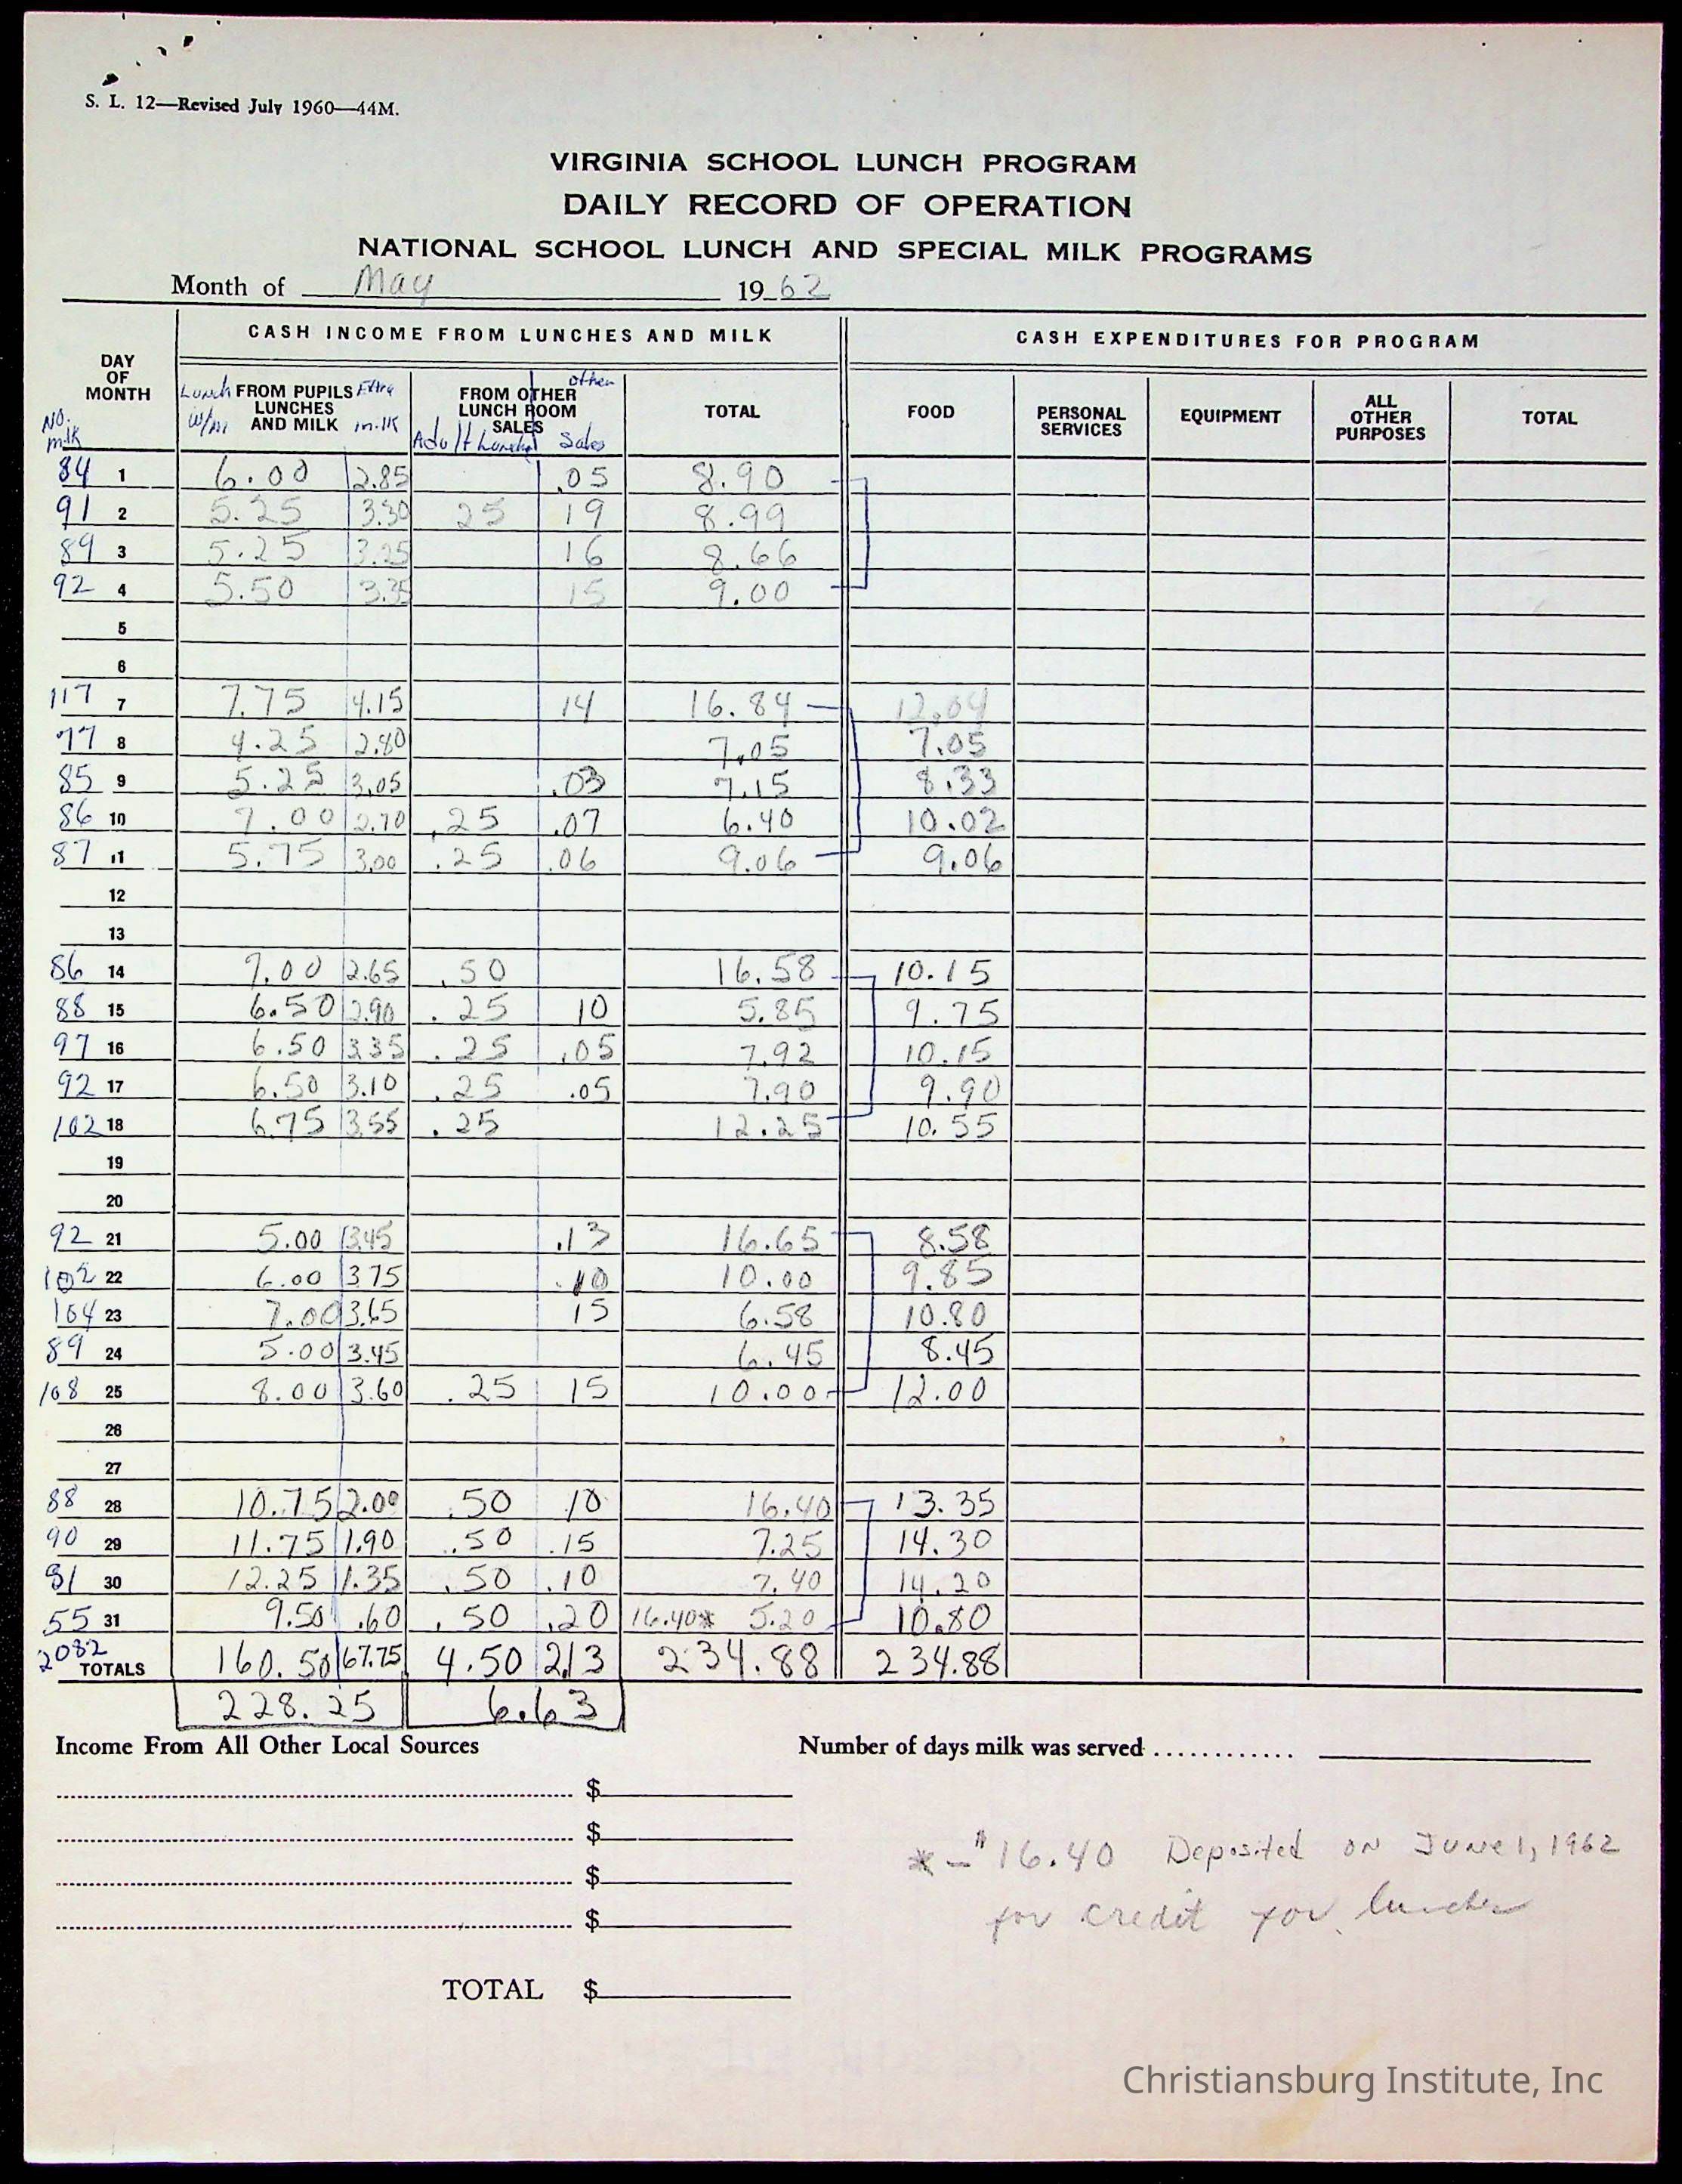 S. L. 12—Revised July 1960—44M.
VIRGINIA SCHOOL LUNCH PROGRAM
DAILY RECORD OF OPERATION
NATIONAL SCHOOL LUNCH AND SPECIAL MILK PROGRAMS
Month of May 1962
CASH INCOME FROM LUNCHES AND MILK CASH EXPENDITURES FOR PROGRAM
DAY OF MONTH
NO. milk
Lunch w/m FROM PUPILS LUNCHES AND MILK Extra milk
FROM OTHER LUNCH ROOM SALES Adult Lunches other Sales
TOTAL FOOD PERSONAL SERVICES EQUIPMENT ALL OTHER PURPOSES TOTAL
84 1 6.00 2.85 .05 8.90
91 2 5.25 3.30 25 19 8.99
89 3 5.25 3.25 16 8.66
92 4 5.50 3.35 15 9.00
5
6
117 7 7.75 4.15 14 16.84 12.04
77 8 4.25 2.80 7.05 7.05
85 9 5.25 3.05 .03 7.15 8.33
86 10 7.00 2.70 .25 .07 6.40 10.02
87 11 5.75 3.00 .25 .06 9.06 9.06
12
13
86 14 7.00 2.65 .50 16.58 10.15
88 15 6.50 2.90 .25 10 5.85 9.75
97 16 6.50 3.35 .25 .05 7.92 10.15
92 17 6.50 3.10 .25 .05 7.90 9.90
102 18 6.75 3.55 .25 12.25 10.55
19
20
92 21 5.00 3.45 .13 16.65 8.58
102 22 6.00 3.75 .10 10.00 9.85
104 23 7.00 3.65 15 6.58 10.80
89 24 5.00 3.45 6.45 8.45
108 25 8.00 3.60 .25 15 10.00 12.00
26
27
88 28 10.75 2.00 .50 10 16.40 13.35
90 29 11.75 1.90 .50 .15 7.25 14.30
81 30 12.25 1.35 .50 .10 7.40 14.20
55 31 9.50 .60 .50 .20 16.40* 5.20 10.80
2082 TOTALS 160.50 67.75 4.50 2.13 234.88 234.88
228.25 6.63
Income From All Other Local Sources Number of days milk was served
$
$
$
$
* - $16.40 Deposited on June 1, 1962
for credit for lunches
TOTAL $
Christiansburg Institute, Inc